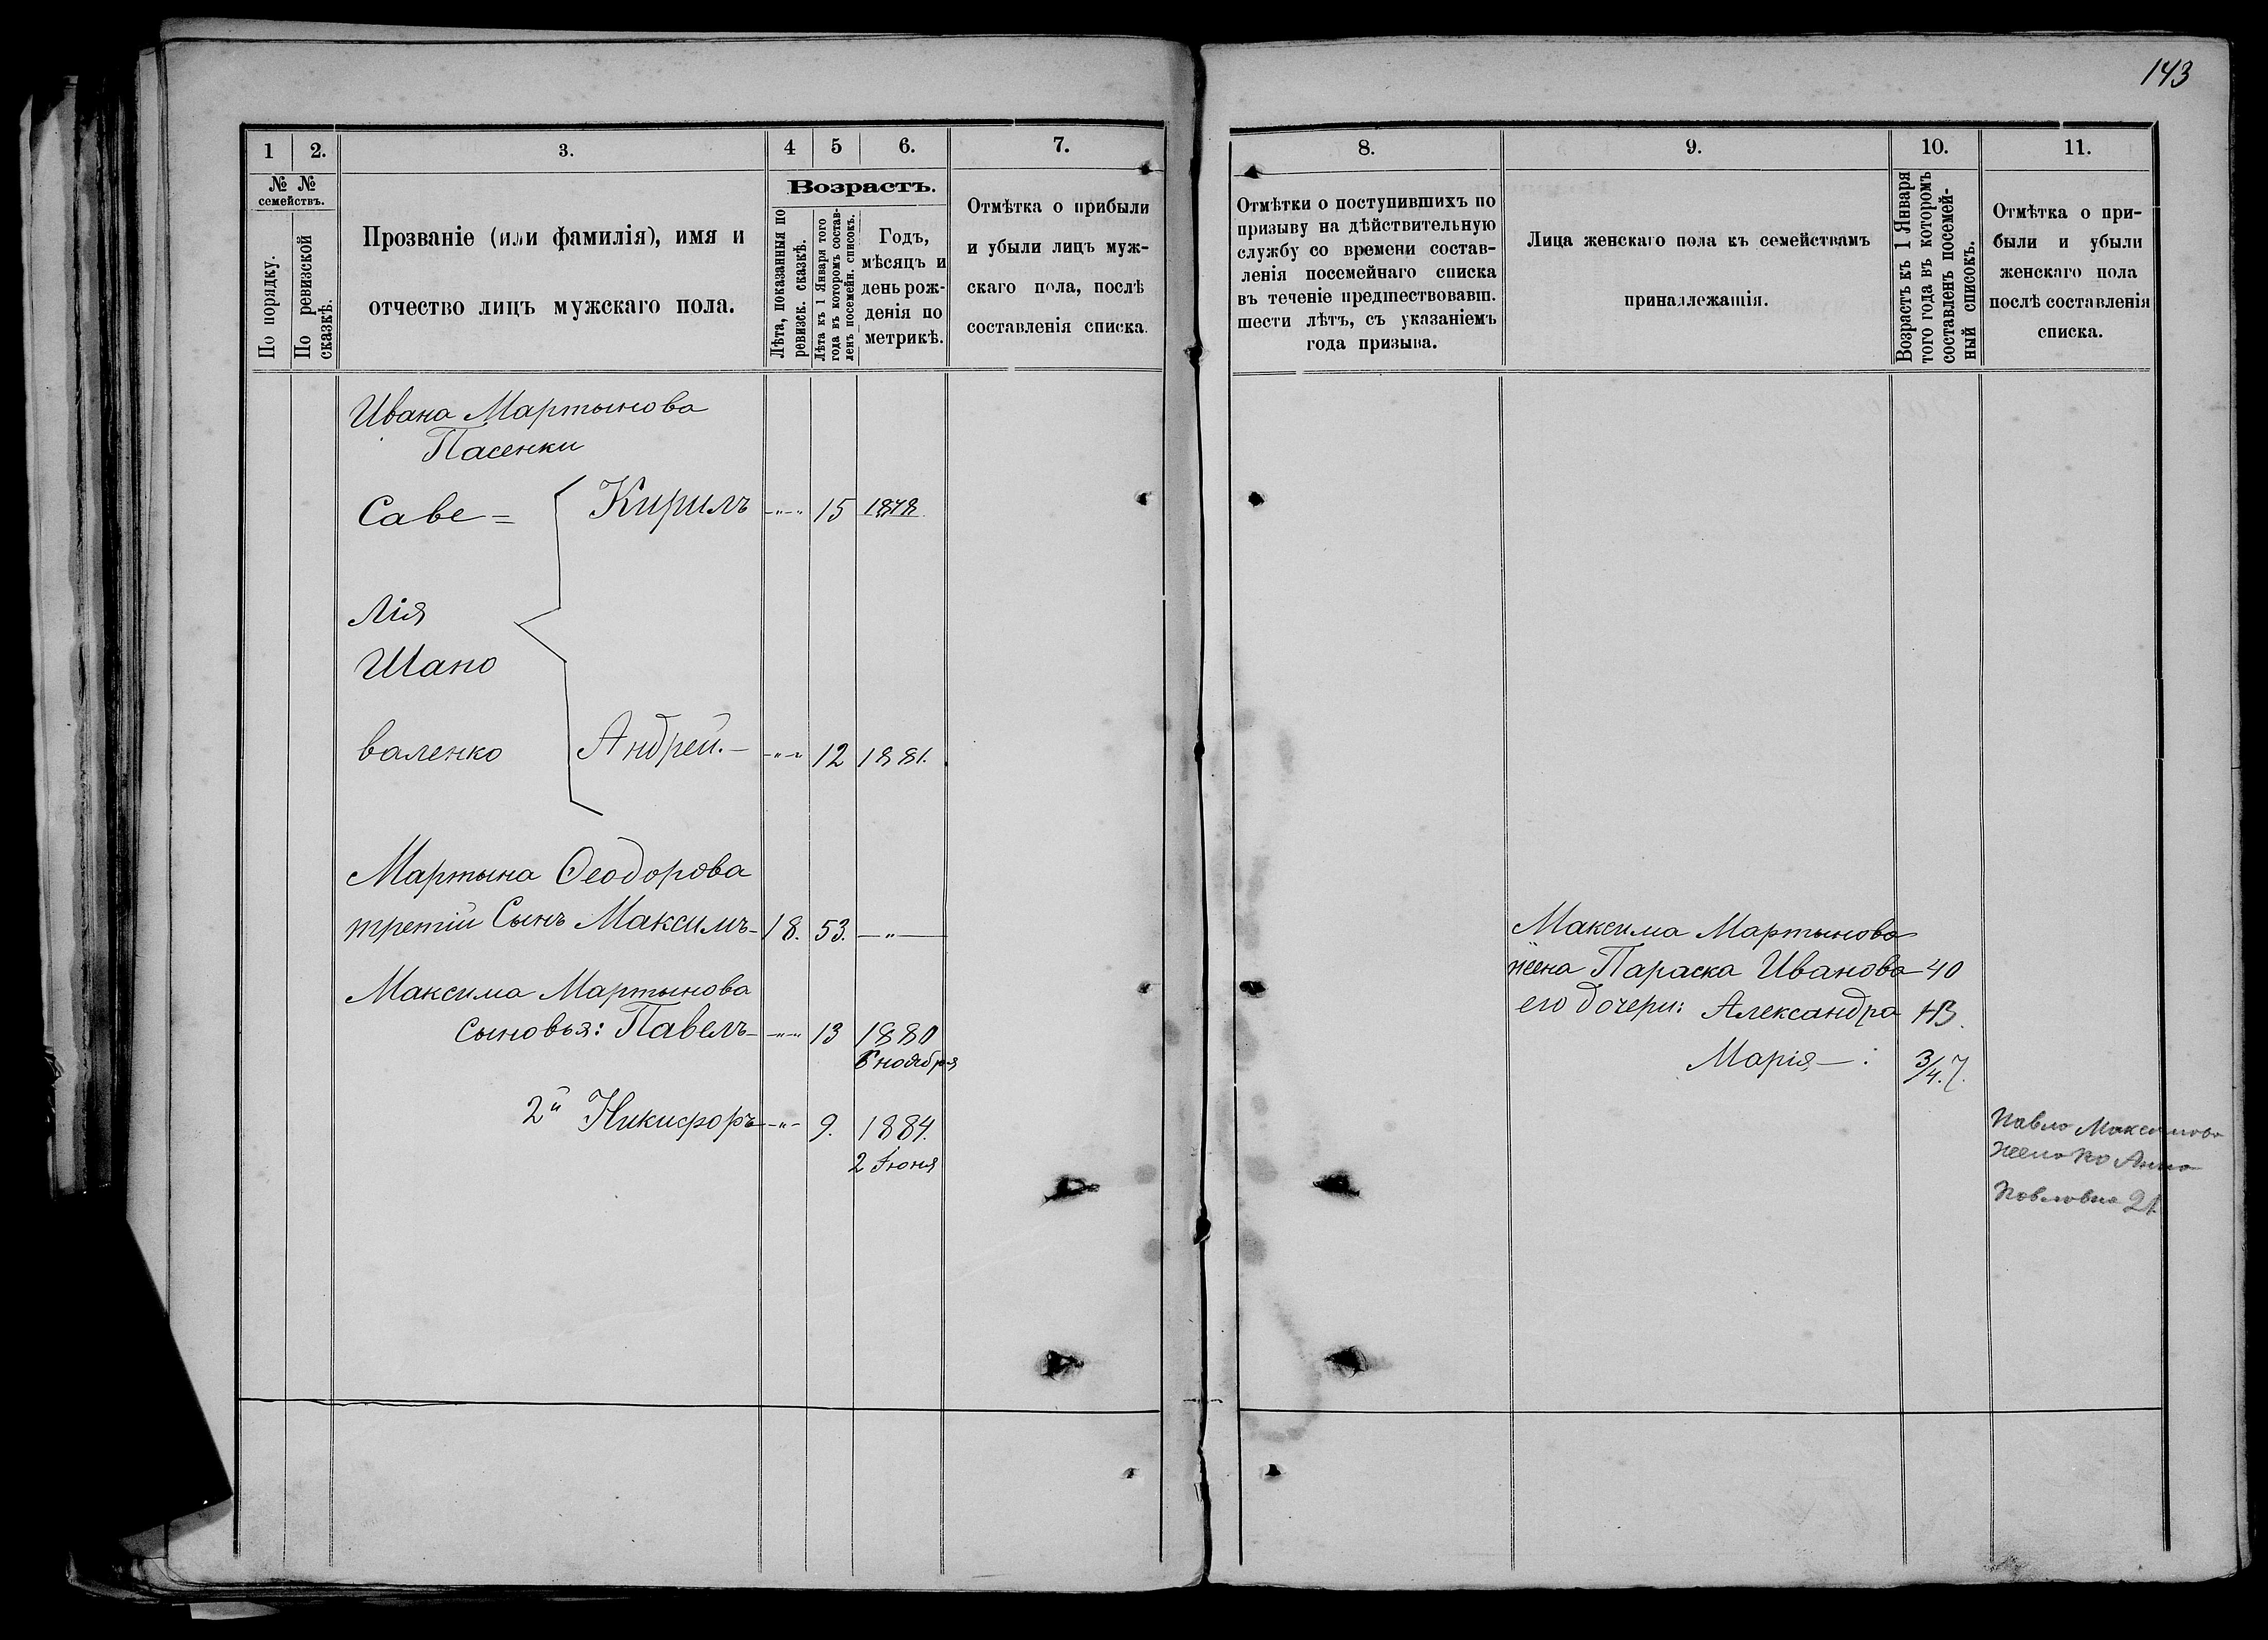 143
1
2.
3.
4
5
6.
7.
№ №
семействъ.
По порядку.
По ревизской
сказкѣ.
Прозваніе (или фамилія), имя и
отчество лицъ мужскаго пола.
Возрастъ.
Лѣта, показанныя по
ревизск. сказкѣ.
Лѣта къ 1 Января того
года въ которомъ состав-
ленъ посемейн. списокъ.
Годъ,
мѣсяцъ и
день рож-
денія по
метрикѣ.
Отмѣтка о прибыли
и убыли лицъ муж-
скаго пола, послѣ
составленія списка.
Ивана Мартынова
Пасенки
Саве=
Кирилъ -"-" 15 1878
лія
Шапо
валенко
Андрей.- -"-" 12 1881.
Мартына Ѳеодорова
третій Сынъ Максимъ- 18. 53. -"-
Максима Мартынова
сыновья: Павелъ- -"-" 13 1880
6 ноября
2й Никифоръ -"- 9. 1884.
2 Іюня
8.
9.
10.
11.
Отмѣтки о поступившихъ по
призыву на дѣйствительную
службу со времени состав-
ленія посемейнаго списка
въ теченіе предшествовавш.
шести лѣтъ, съ указаніемъ
года призыва.
Лица женскаго пола къ семействамъ
принадлежащія.
Возрастъ къ 1 Января
того года въ которомъ
составленъ посемей-
ный списокъ.
Отмѣтка о при-
были и убыли
женскаго пола
послѣ составленія
списка.
Максима Мартынова
жена Параска Иванова 40
его дочери: Александра
Марія-:
Павла Максимова
жена Анна
Павловна 21